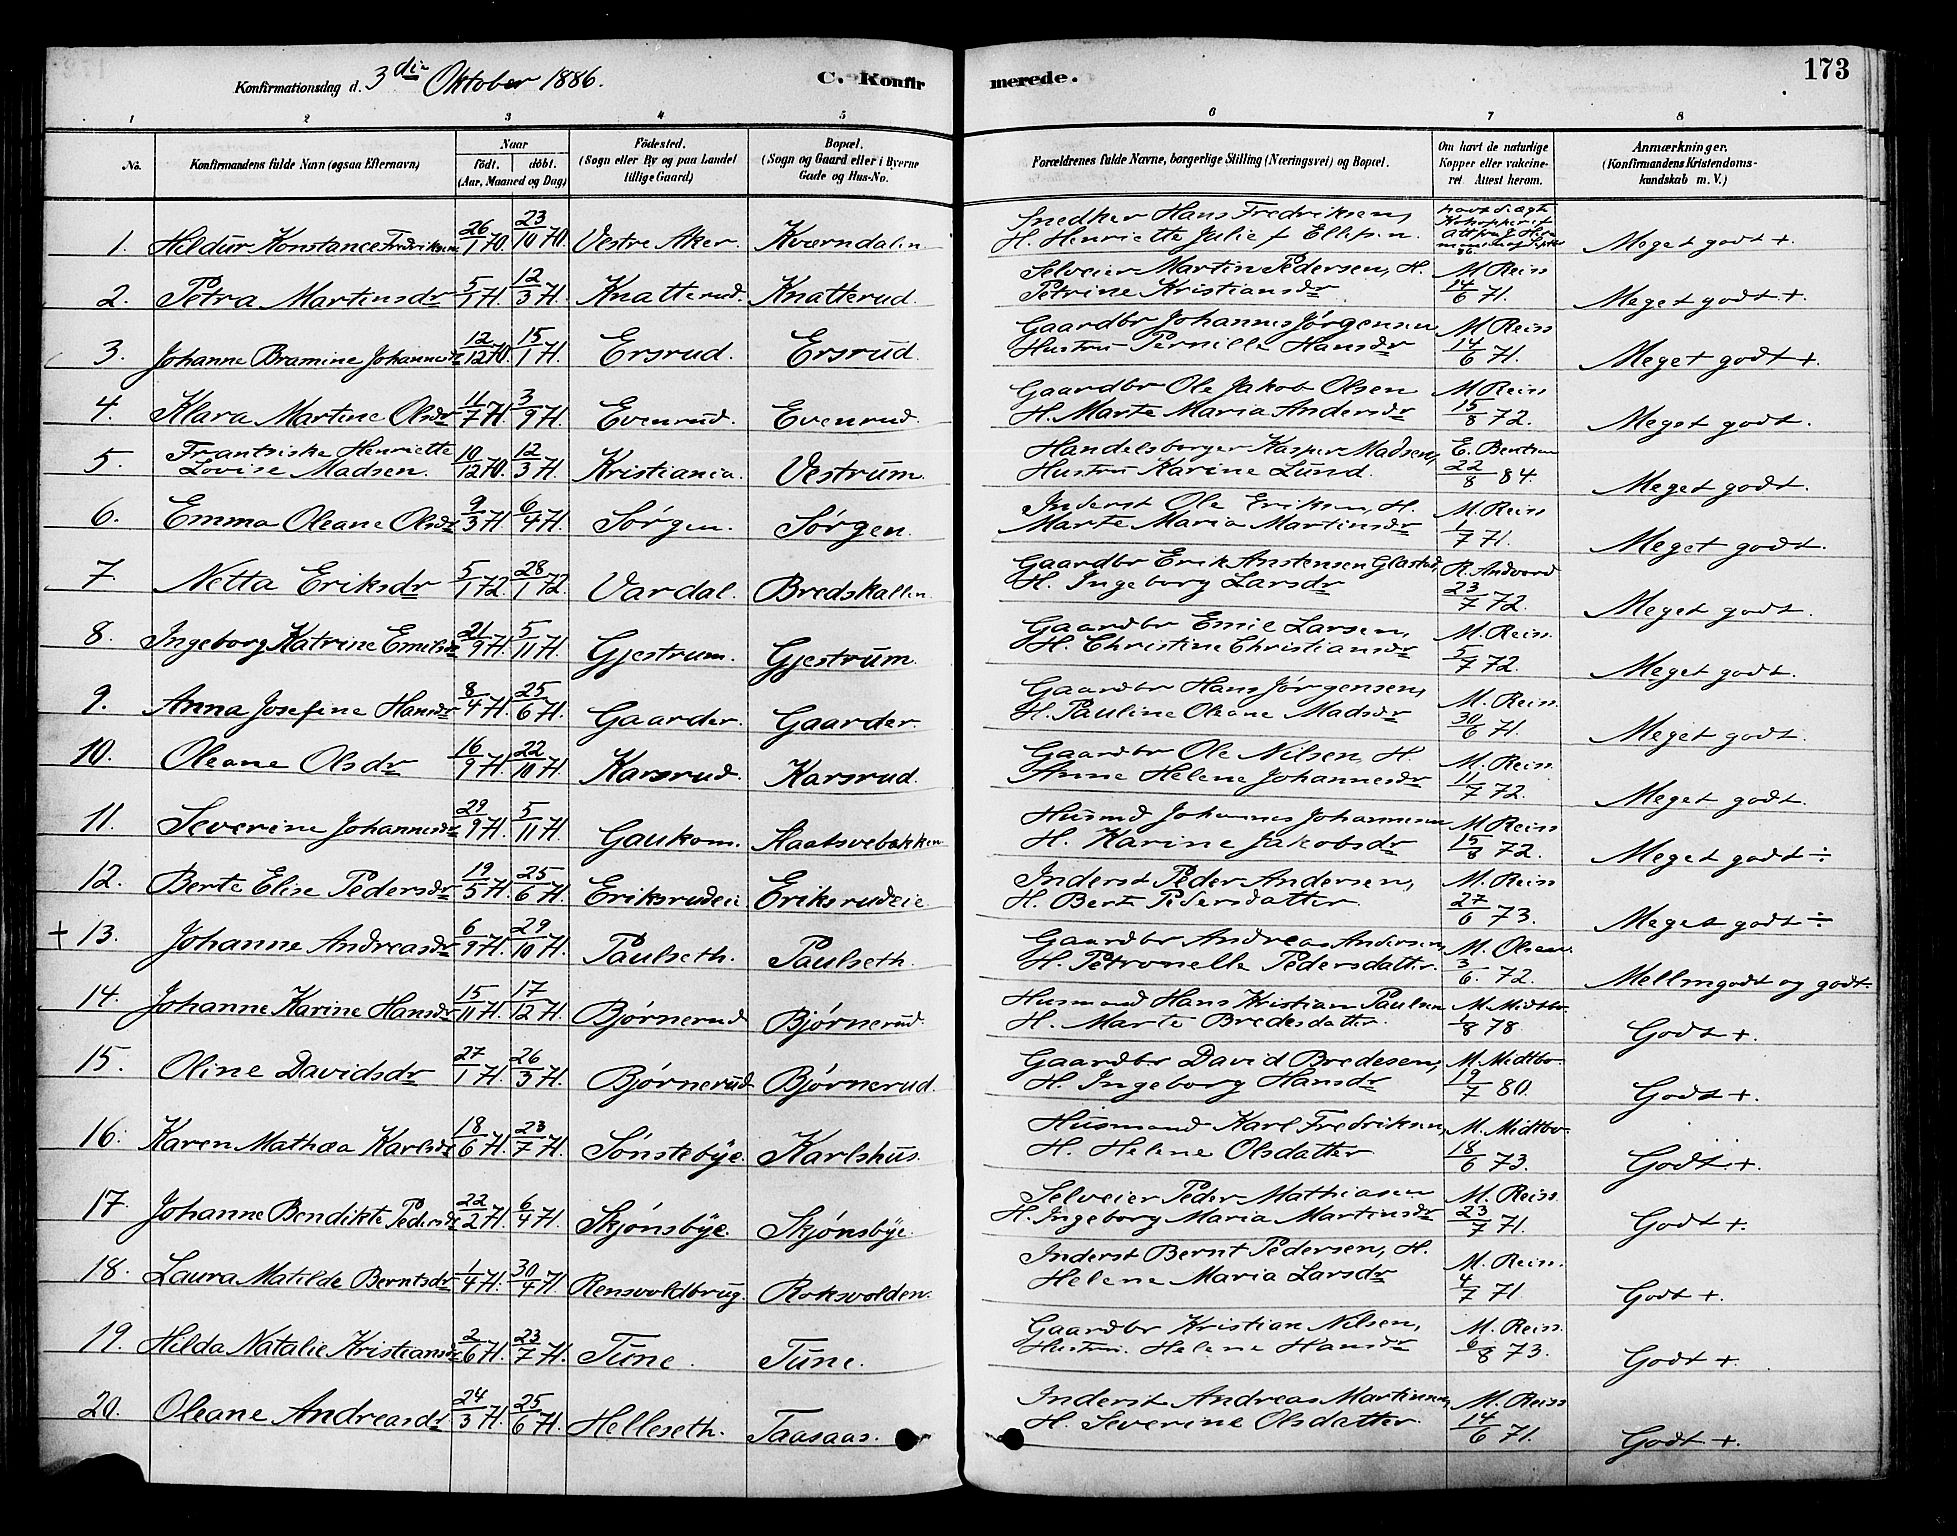 Konfirmationsdag d. 3die Oktober 1886.
C. Konfirmerede.
173
1 2 3 4 5 6 7 8
No.
Konfirmandens fulde Navn (ogsaa Efternavn)
Naar
födt. döbt.
(Aar, Maaned og Dag)
Födested.
(Sogn eller By og paa Landet
tillige Gaard)
Bopæl.
(Sogn og Gaard eller i Byerne
Gade og Hus-No.
Forældrenes fulde Navne, borgerlige Stilling (Næringsvei) og Bopæl.
Om havt de naturlige
Kopper eller vakcine-
ret Attest herom.
Anmærkninger.
(Konfirmandens Kristendoms-
kundskab m. V.)
1. Hildur Konstance Fredriksen 26/1 70. 23/10 70. Vestre Aker. Kværndalen.
Snedker Hans Fredriksen,
H. Henriette Julie f Ellefsen. Meget godt +.
2. Petra Martinsdr 5/1 71. 12/3 71. Knatterud. Knatterud.
Selveier Martin Pedersen, H.
Petrine Kristiansdr M. Reiss 14/6 71. Meget godt +.
3. Johanne Bramine Johannesdr 12/12 70. 15/1 71. Ersrud. Ersrud.
Gaardbr Johannes Jørgensen
Hustru Pernille Hansdr M. Reiss 14/6 71. Meget godt +.
4. Klara Martine Olsdr 11/7 71. 3/9 71. Evenrud. Evenrud.
Gaardbr Ole Jakob Olsen
H. Marte Maria Andersdr M. Reiss 15/8 72. Meget godt.
5. Frantsiske Henriette
Lovise Madsen. 10/12 70. 12/3 71. Kristiania. Vestrum.
Handelsborger Kasper Madsen,
Hustru Karine Lund. E. Bentsen 22/8 84. Meget godt.
6. Emma Oleane Olsdr 9/3 71 6/4 71. Sørgen. Sørgen.
Inderst Ole Eriksen, H.
Marte Maria Martinsdr M. Reiss 1/7 71. Meget godt.
7. Netta Eriksdr 5/1 72. 28/1 72. Vardal. Bredskallen.
Gaardbr Erik Anstensen Glastad,
H. Ingeborg Larsdr R. Andvord 23/7 72. Meget godt.
8. Ingeborg Katrine Emilsdr 21/9 71. 5/11 71. Gjestrum. Gjestrum.
Gaardbr Emil Larsen,
H. Christine Christiansdr M. Reiss. 5/7 72. Meget godt.
9. Anna Josefine Hansdr 8/4 71. 25/6 71. Gaarder. Gaarder.
Gaardbr Hans Jörgensen,
H. Pauline Oleane Madsdr M. Reiss. 30/6 71. Meget godt.
10. Oleane Olsdr 16/9 71. 22/10 71. Karsrud. Karsrud.
Gaardbr Ole Nilsen, H.
Anne Helene Johannesdr M. Reiss. 11/7 72. Meget godt.
11. Severine Johannesdr 29/9 71. 5/11 71. Gaukom. Kaatsvebakken
Husmd Johannes Johannesen
H. Karine Jakobsdr M. Reiss 15/8 72. Meget godt ÷
12. Berte Elise Pedersdr 19/5 71. 25/6 71. Eriksrudeie. Eriksrudeie.
Inderst Peder Andersen,
H. Berte Pedersdatter. M. Reiss 27/6 73. Meget godt ÷
+ 13. Johanne Andreasdr 6/9 71. 29/10 71. Paulseth. Paulseth.
Gaardbr Andreas Andersen
H. Petronelle Pedersdatter. M. Olsen. 3/6. 72. Mellmgodt og godt.
14. Johanne Karine Hansdr 15/11 71. 17/12 71. Bjørnerud Bjørnerud.
Husmand Hans Kristian Paulsen
H. Marte Bredesdatter. M. Midtbo. 1/8 78 Godt +.
15. Oline Davidsdr 27/1 71. 26/3 71. Bjørnerud. Bjørnerud.
Gaardbr David Bredesen,
H. Ingeborg Hansdr M. Midtbo. 19/7 80. Godt +.
16. Karen Mathea Karlsdr 18/6 71. 23/7 71. Sønstebye. Karlshus.
Husmand Karl Fredriksen,
H. Helene Olsdatter M. Midtbo. 18/6 73. Godt +.
17. Johanne Bendikte Pedersdr 22/2 71. 6/4 71. Skjønsbye. Skjønsbye.
Selveier Peder Mathiasen
H. Ingeborg Maria Martinsdr M. Reiss. 23/7 71. Godt +.
18. Laura Matilde Berntsdr 1/4 71. 30/4 71 Rensvoldbrug. Roksvolden.
Inderst Bernt Pedersen, H.
Helene Maria Larsdr M. Reiss. 4/7 71 Godt +.
19. Hilda Natalie Kristiansdr 2/6 71. 23/7 71. Tune. Tune.
Gaardbr Kristian Nilsen,
Hustru. Helene Hansdr M. Reiss. 6/8 73. Godt +.
20. Oleane Andreasdr 24/3 71. 25/6 71. Helleseth. Taasaas.
Inderst Andreas Martinsen,
H. Severine Olsdatter. M. Reiss 14/6 71. Godt +.